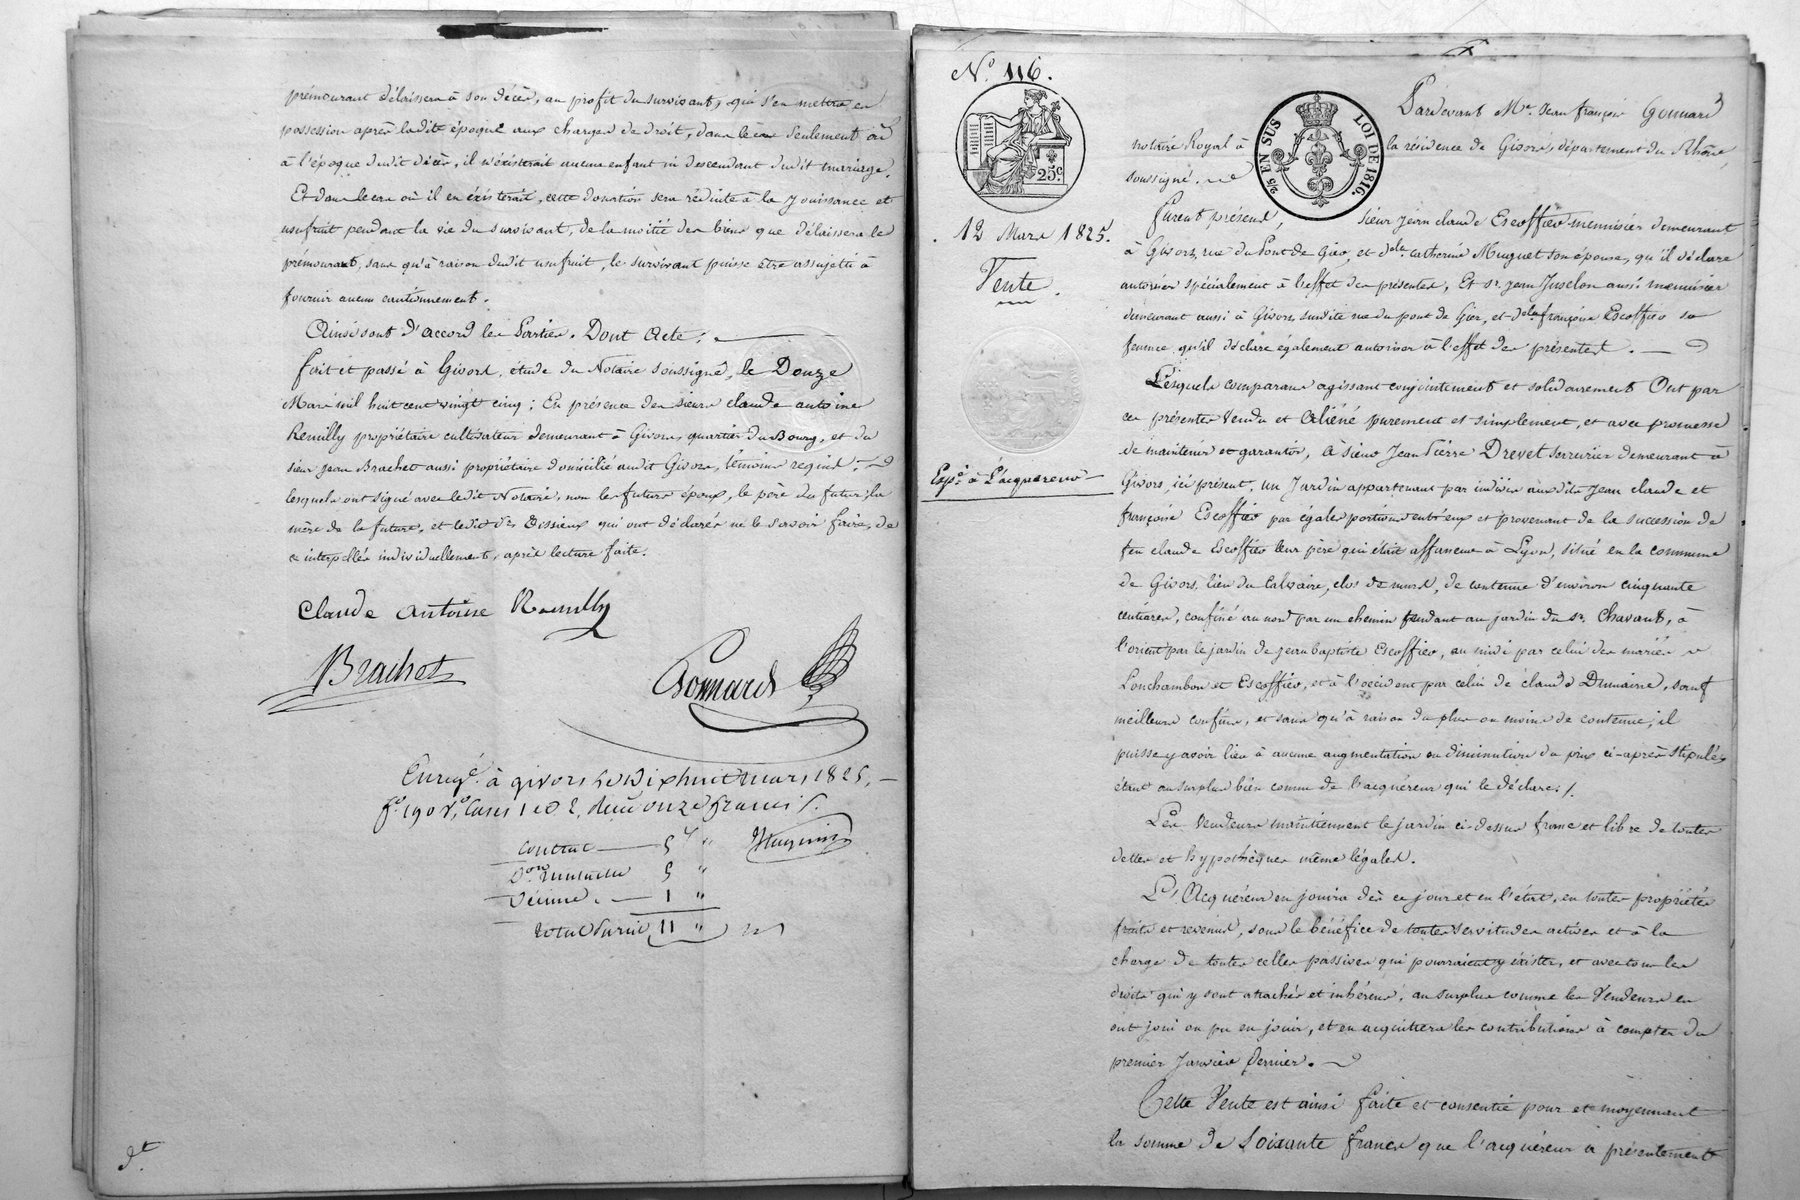 prémourant délaissera à son décès, au profit du survivant, qui s'en mettra en
possession après ladite époque aux charges de droit, dans le cas seulement où
à l'époque dudit décès, il n'existerait aucun enfant ni descendant dudit mariage.
Et dans le cas où il en éxisterait, cette donation sera réduite à la jouissance et
usufruit pendant la vie du survivant, de la moitié des biens que délaissera le
prémourant, sans qu'à raison dudit usufruit, le survivant puisse être assujetti à
fournir aucun cautionnement.
Ainsi sont d'accord les Parties. Dont Acte:
fait et passé à Givors, étude du Notaire soussigné, le Douze
Mars mil huit cent vingt cinq; En présence des sieurs claude antoine
Remilly propriétaire cultivateur demeurant à Givors, quartier du Bourg, et du
sieur jean Brachet aussi propriétaire domicilié audit Givors, témoins requis;
lesquels ont signé avec ledit Notaire, non les futurs époux, le père du futur, la
mère de la future, et ledit Dissieux qui ont déclarés ne le savoir faire, de
ce interpellés individuellement, après lecture faite.
Claude antoine Remilly
Brachet
Gonnard
Enregé. à givors le Dixhuit mars 1825,
fo. 190 Vo. Cases 1 et 2, reçu onze francs
contrat 5 f "
Don mutuelle 5 "
Décime. 1 "
total Parie 11 "
dt.
No. 116.
25c
2/5 EN SUS LOI DE 1816.
Pardevant Me. Jean françois Gonnard
notaire Royal à la résidence de Givors, département du Rhône,
soussigné.
12 Mars 1825.
Vente.
Expé. à l'acquereur
furent présens, sieur jean claude Escoffier menuisier demeurant
à Givors, rue du Pont de Gier, et dele. catherine Muguet son épouse, qu'il déclare
autoriser spécialement à l'effet des présentes, Et sr. jean Juselon aussi menuisier
demeurant aussi à Givors, susdite rue du pont de Gier, et dele françoise Escoffier sa
femme qu'il déclare également autoriser à l'effet des présentes.
Lesquels comparans agissant conjointement et solidairement Ont par
ces présentes Vendu et Aliéné purement et simplement, et avec promesse
de maintenir et garantir, à sieur Jean Pierre Drevet serrurier demeurant à
Givors, ici présent, un Jardin appartenant par indivis auxdits jean claude et
françoise Escoffier par égales portions entr'eux et provenant de la succession de
feu claude Escoffier leur père qui était affaneur à Lyon, situé en la commune
de Givors, lieu du Calvaire, clos de murs, de contenue d'environ cinquante
centiares, confiné au nord par un chemin tendant au jardin du sr. Chavant, à
l'orient par le jardin de jean baptiste Escoffier, au midi par celui des mariés
Ponchambon et Escoffier, et à l'occident par celui de claude Dumaine, sauf
meilleurs confins, et sans qu'à raison du plus ou moins de contenue, il
puisse y avoir lieu à aucune augmentation ou diminution du prix ci-après stipulé,
étant au surplus bien connu de l'acquéreur qui le déclare.
Les Vendeurs maintiennent le jardin ci-dessus franc et libre de toutes
dettes et hypothèques même légales.
L'Acquéreur en jouira dès ce jour et en l'état, en toutes propriétés
fruits et revenus, sous le bénéfice de toutes servitudes actives et à la
charge de toutes celles passives qui pourraient y éxister, et avec tous les
droits qui y sont attachés et inhérens, au surplus comme les Vendeurs en
ont joui ou pu en jouir, et en acquittera les contributions à compter du
premier Janvier dernier.
Cette Vente est ainsi faite et consentie pour et moyennant
la somme de Soixante francs que l'acquéreur a présentement